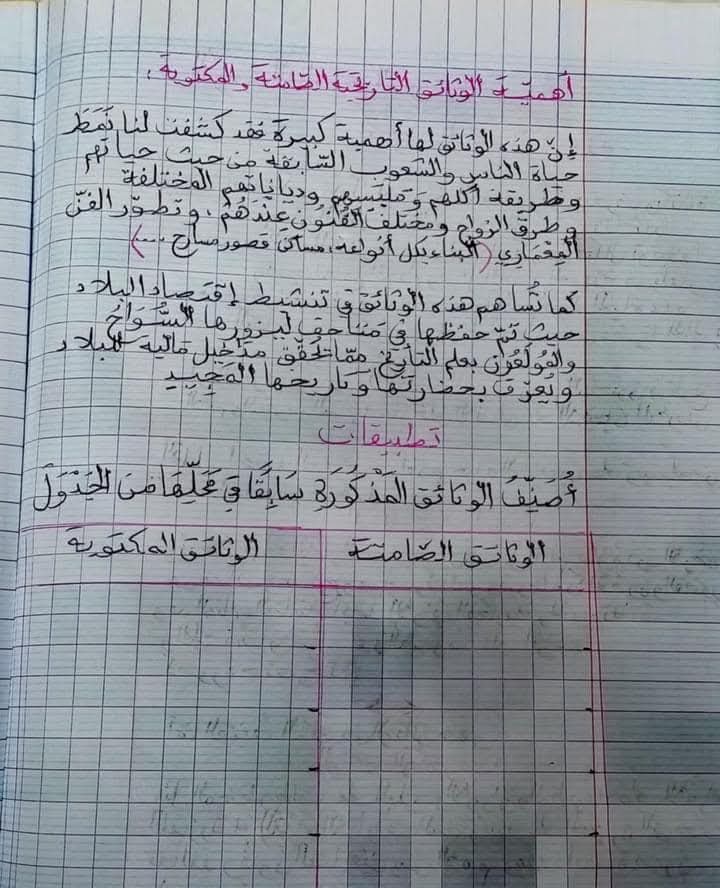 أهميّة الوثائق التاريخية الصّامتة والمكتوبة.
إنّ هذه الوثائق لها أهمية كبيرة فقد كشفت لنا نَمَطَ
حياة الناس والشعوب السّابقة من حيث حياتهم
وطريقة أكلهم وَمَلْبَسِهِم ودياناتهم المختلفة
وطرق الزواج ومختلف الفُنُون عِنْدَهُمْ، وتطوّر الفنّ
المِعْمَاري (البناء بكل أنواعه، مساكن قصور مسارح ....)
كما تُساهم هذه الوثائق في تنشيط إقتصاد البلاد
حيث تمّ حفظها في مَتَاحِف ليزورها السُّوَاحْ
والمُولَعُونَ بعلم التّاريخ ممّا يُحقّق مداخيل مالية للبلاد
وَيُعرّف بحضارتها وتاريخها المَجِيد
تطبيقات
أُصَنِّفُ الوثائق المَذْكُورَة سَابِقًا في مَحَلِّهَا مِنَ الجَدْوَلْ
الوثائق الصّامتة الوثائق المكتوبة